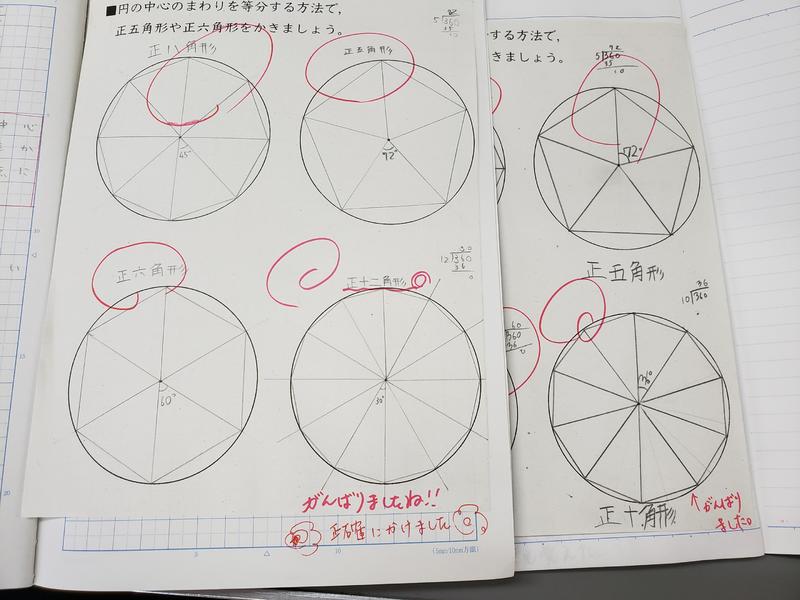 ■円の中心のまわりを等分する方法で，
正五角形や正六角形をかきましょう。
正八角形
45°
正五角形
5)360
35
10
72°
正六角形
60°
正十二角形
30
12)360
36
0
30°
がんばりましたね!!
正確にかけました
5
10
(5mm10mm方眼)
する方法で，
きましょう。
72
5)360
35
10
72°
正五角形
60
360
36
0
36
10)360
36°
正十角形
↑がんばり
ました。
心
か
に
い
10
15
20